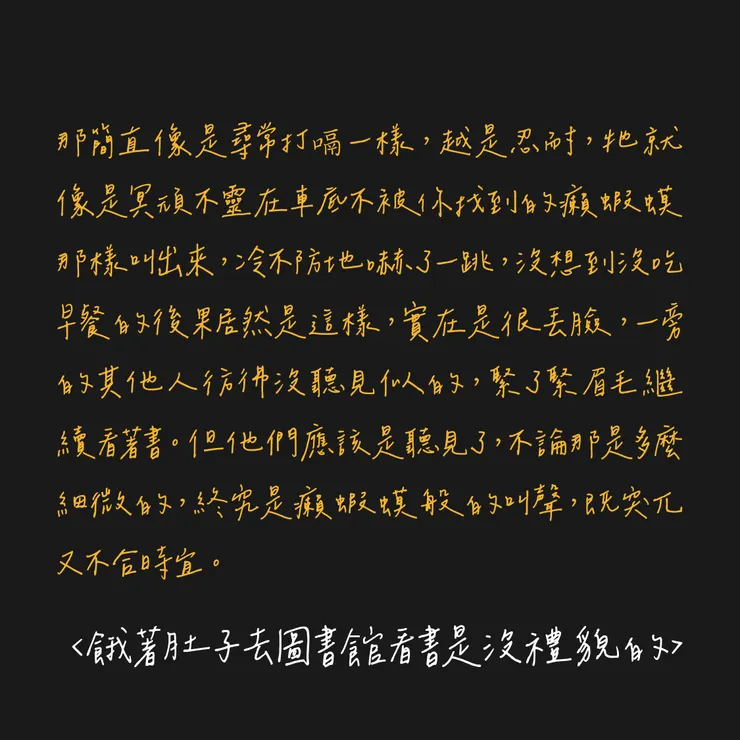 那簡直像是尋常打嗝一樣，越是忍耐，牠就
像是冥頑不靈在車底不被你找到的癩蝦蟆
那樣叫出來，冷不防地嚇了一跳，沒想到沒吃
早餐的後果居然是這樣，實在是很丟臉，一旁
的其他人彷彿沒聽見似的，緊了緊眉毛繼
續看著書。但他們應該是聽見了，不論那是多麼
細微的，終究是癩蝦蟆般的叫聲，既突兀
又不合時宜。
<餓著肚子去圖書館看書是沒禮貌的>